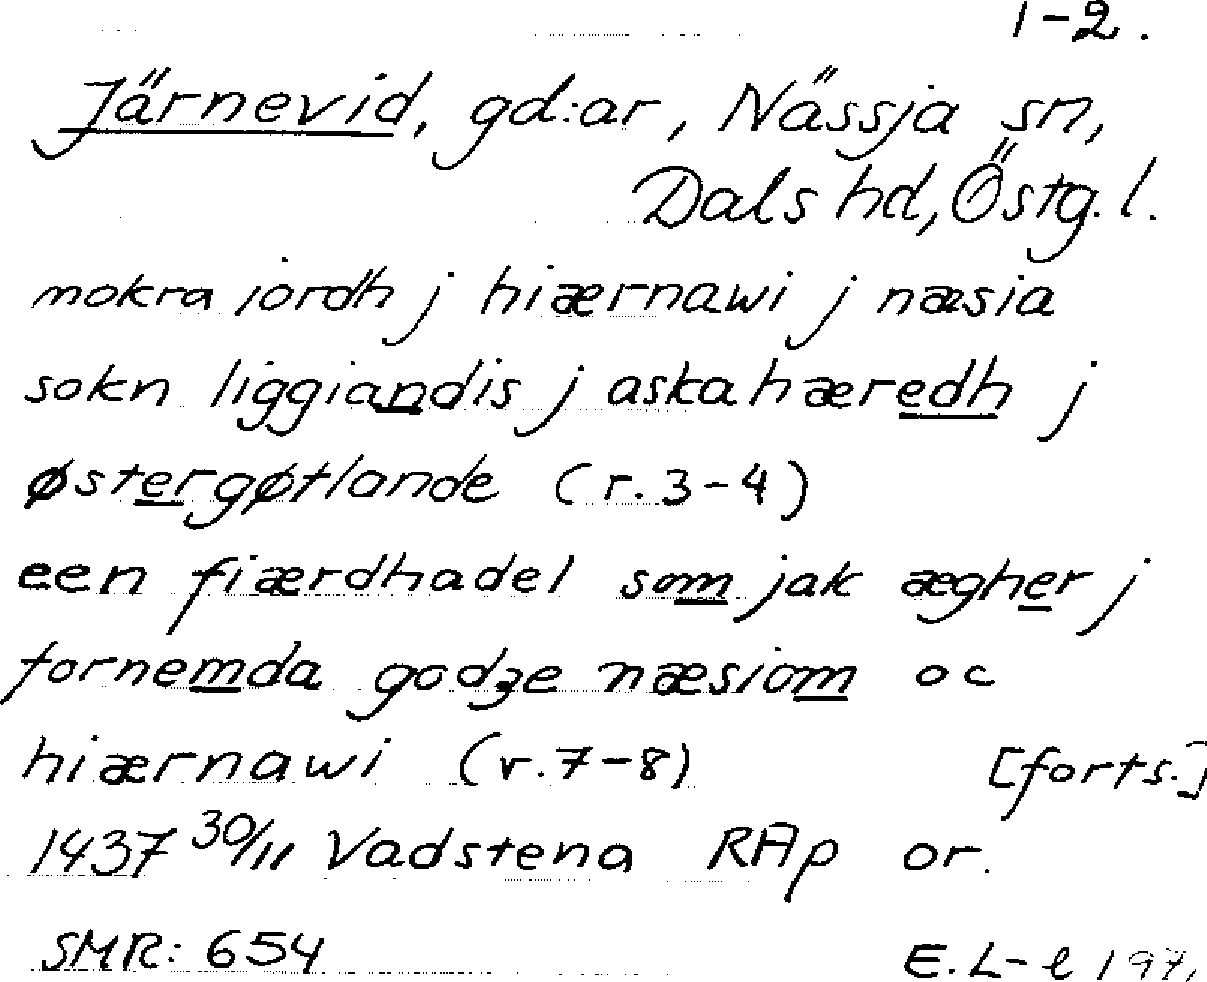 1-2.
Järnevid, gd:ar, Nässja sn,
Dals hd, Östg. l.
mokra iordh j hiærnawi j næsia
sokn liggiandis j askahæredh j
østergøtlande (r. 3-4)
een fiærdhadel som jak ægher j
fornemda godze næsiom oc
hiærnawi (r. 7-8) [forts.]
1437 30/11 Vadstena RAp or.
SMR: 654 E. L-e